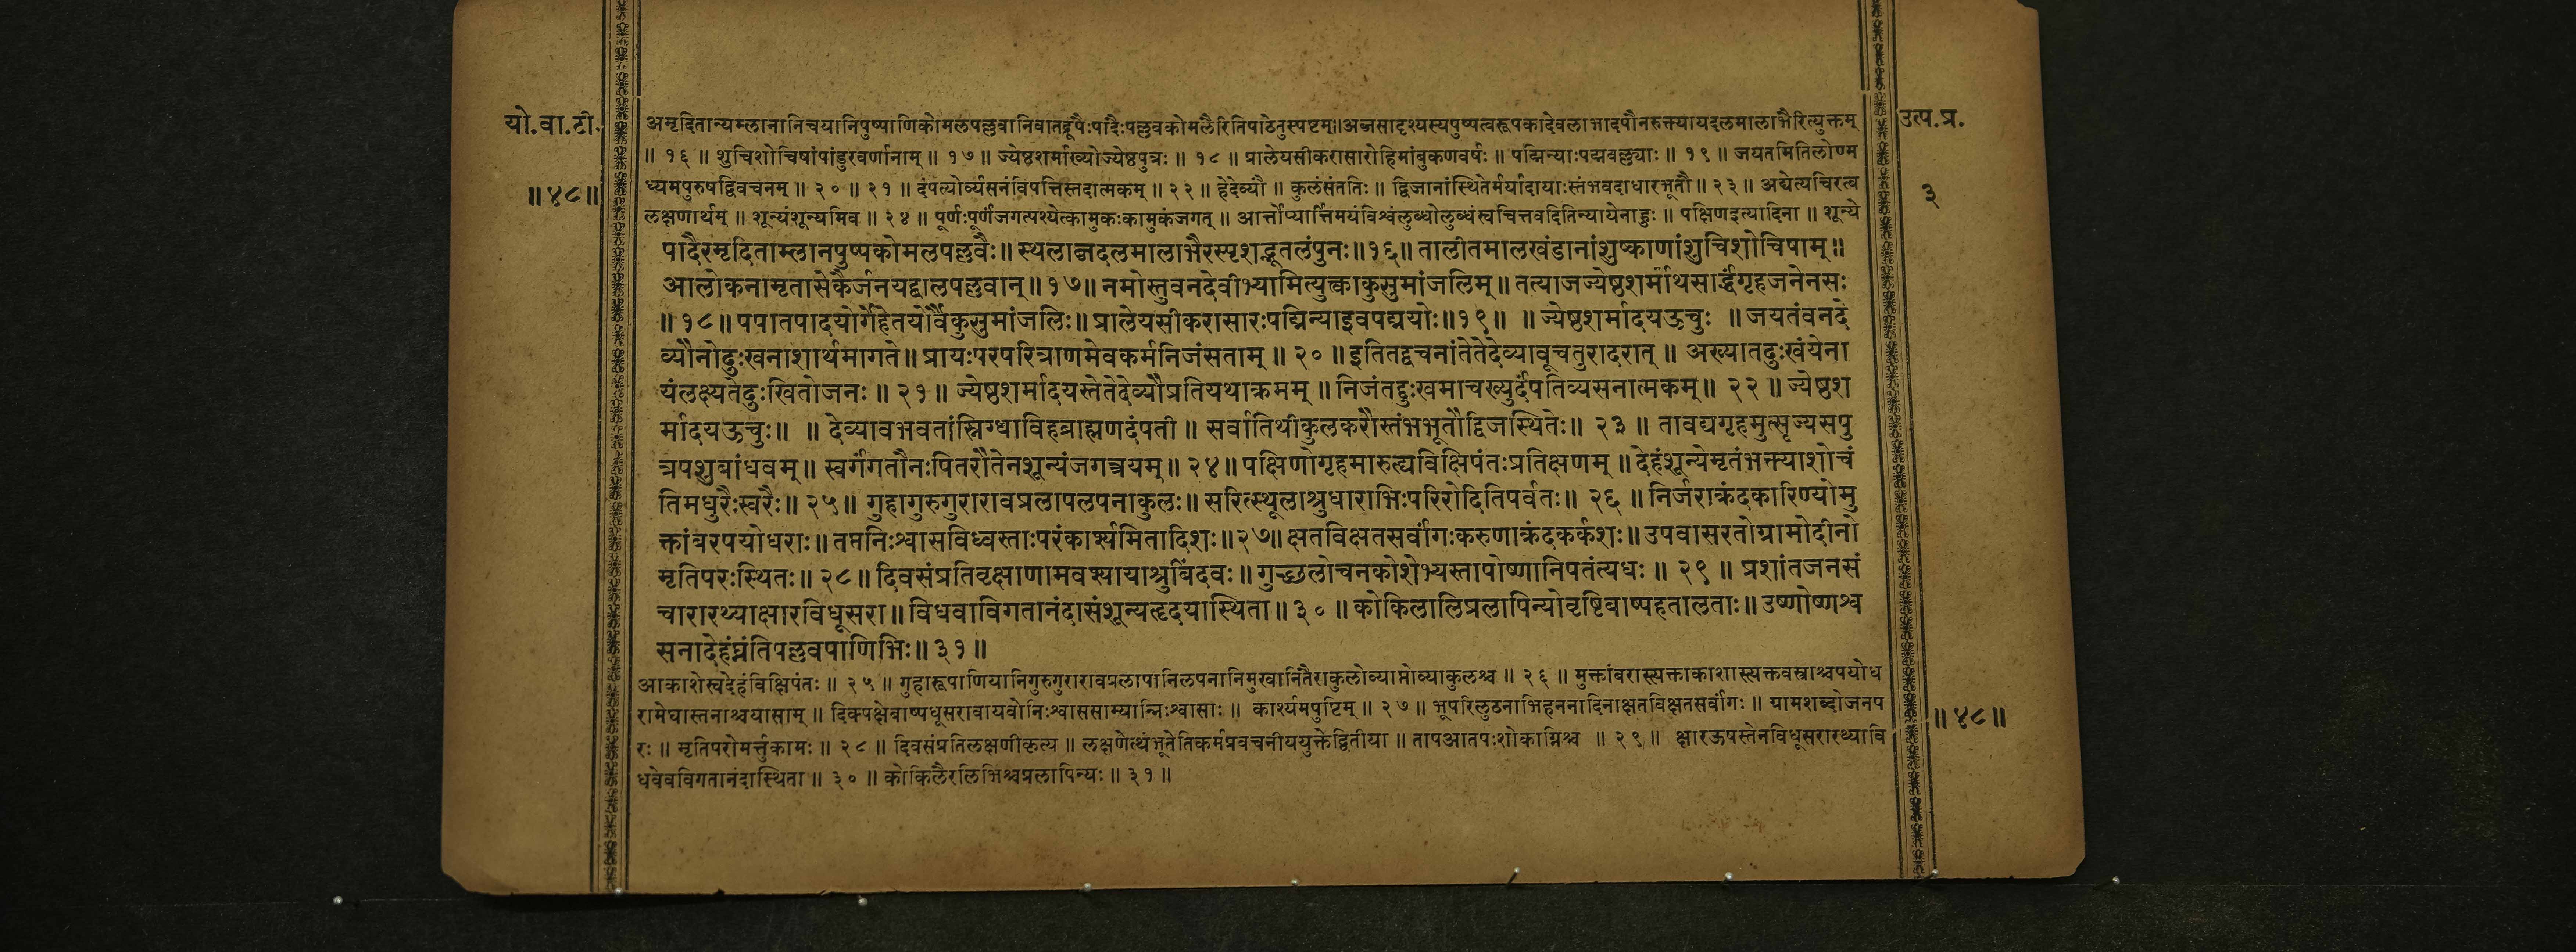 यो.वा.टी.
॥४८॥
अमृदितान्यम्लानानिचयानिपुष्पाणिकोमलपल्लवानिवातद्रूपैःपादैःपल्लवकोमलैरितिपाठेनुस्पष्टम्॥अब्जसादृश्यस्यपुष्पत्वरूपकादेवलाभादपौनरुक्त्यायदलमालाभैरित्युक्तम्
॥ १६ ॥ शुचिशोचिषांपांडुरवर्णानाम् ॥ १७ ॥ ज्येष्ठशर्माख्योज्येष्ठपुत्रः ॥ १८ ॥ प्रालेयसीकरासारोहिमांबुकणवर्षः ॥ पद्मिन्याःपद्मवल्ल्याः ॥ १९ ॥ जयतमितिलोण्म
ध्यमपुरुषद्विवचनम् ॥ २० ॥ २१ ॥ दंपत्योर्व्यसनंविपत्तिस्तदात्मकम् ॥ २२ ॥ हेदेव्यौ ॥ कुलंसंततिः ॥ द्विजानांस्थितेर्मर्यादायाःस्तंभवदाधारभूतौ ॥ २३ ॥ अद्येत्यचिरत्व
लक्षणार्थम् ॥ शून्यंशून्यमिव ॥ २४ ॥ पूर्णःपूर्णंजगत्पश्येत्कामुकःकामुकंजगत् ॥ आर्त्तोप्यार्त्तिमयंविश्वंलुब्धोलुब्धंस्वचित्तवदितिन्यायेनाहुः ॥ पक्षिणइत्यादिना ॥ शून्ये
पादैरमृदिताम्लानपुष्पकोमलपल्लवैः॥ स्थलाब्जदलमालाभैरस्पृशद्भूतलंपुनः॥१६॥ तालीतमालखंडानांशुष्काणांशुचिशोचिषाम्॥
आलोकनामृतासेकैर्जनयद्बालपल्लवान्॥१७॥ नमोस्तुवनदेवीभ्यामित्युक्त्वाकुसुमांजलिम्॥ तत्याजज्येष्ठशर्माथसार्द्धंगृहजनेनसः
॥१८॥ पपातपादयोर्गेहेतयोर्वैकुसुमांजलिः॥ प्रालेयसीकरासारःपद्मिन्याइवपद्मयोः॥१९॥ ॥ ज्येष्ठशर्मादयऊचुः ॥ जयतंवनदे
व्यौनोदुःखनाशार्थमागते॥ प्रायःपरपरित्राणमेवकर्मनिजंसताम् ॥ २० ॥ इतितद्वचनांतेतेदेव्यावूचतुरादरात् ॥ अख्यातदुःखंयेना
यंलक्ष्यतेदुःखितोजनः ॥ २१ ॥ ज्येष्ठशर्मादयस्तेतेदेव्यौप्रतियथाक्रमम् ॥ निजंतद्दुःखमाचख्युर्दंपतिव्यसनात्मकम्॥ २२ ॥ ज्येष्ठश
र्मादयऊचुः॥ ॥ देव्यावभवतांस्निग्धाविहब्राह्मणदंपती ॥ सर्वातिथीकुलकरौस्तंभभूतौद्विजस्थितेः॥ २३ ॥ तावद्यगृहमुत्सृज्यसपु
त्रपशुबांधवम्॥ स्वर्गंगतौनःपितरौतेनशून्यंजगत्त्रयम्॥ २४॥ पक्षिणोगृहमारुह्यविक्षिपंतःप्रतिक्षणम् ॥ देहंशून्येमृतंभक्त्याशोचं
तिमधुरैःस्वरैः॥ २५॥ गुहागुरुगुरारावप्रलापलपनाकुलः॥ सरित्स्थूलाश्रुधाराभिःपरिरोदितिपर्वतः॥ २६ ॥ निर्जराक्रंदकारिण्योमु
क्तांबरपयोधराः॥ तप्तनिःश्वासविध्वस्ताःपरंकार्श्यमितादिशः॥२७॥ क्षतविक्षतसर्वांगःकरुणाक्रंदकर्कशः॥ उपवासरतोग्रामोदीनो
मृतिपरःस्थितः॥ २८॥ दिवसंप्रतिवृक्षाणामवश्यायाश्रुबिंदवः॥ गुच्छलोचनकोशेभ्यस्तापोष्णानिपतंत्यधः ॥ २९ ॥ प्रशांतजनसं
चारारथ्याक्षारविधूसरा॥ विधवाविगतानंदासंशून्यहृदयास्थिता॥ ३० ॥ कोकिलालिप्रलापिन्योवृष्टिबाष्पहतालताः॥ उष्णोष्णश्व
सनादेहंघ्नंतिपल्लवपाणिभिः॥ ३१॥
आकाशेस्वदेहंविक्षिपंतः ॥ २५ ॥ गुहारूपाणियानिगुरुगुरारावप्रलापानिलपनानिमुखानितैराकुलोव्याप्तोव्याकुलश्च ॥ २६ ॥ मुक्तांबरास्त्यक्ताकाशास्त्यक्तवस्त्राश्चपयोध
रामेघास्तनाश्चयासाम् ॥ दिक्पक्षेबाष्पधूसरावायवोनिःश्वाससाम्यान्निःश्वासाः ॥ कार्श्यमपुष्टिम् ॥ २७ ॥ भूपरिलुठनाभिहननादिनाक्षतविक्षतसर्वांगः ॥ यामशब्दोजनप
रः ॥ मृतिपरोमर्त्तुकामः ॥ २८ ॥ दिवसंप्रतिलक्षणीकृत्य ॥ लक्षणेत्थंभूतेतिकर्मप्रवचनीययुक्तेद्वितीया ॥ तापआतपःशोकाग्निश्च ॥ २९ ॥ क्षारऊषस्तेनविधूसरारथ्यावि
धवेवविगतानंदास्थिता ॥ ३० ॥ कोकिलैरलिभिश्चप्रलापिन्यः ॥ ३१ ॥
उत्प.प्र.
३
॥४८॥